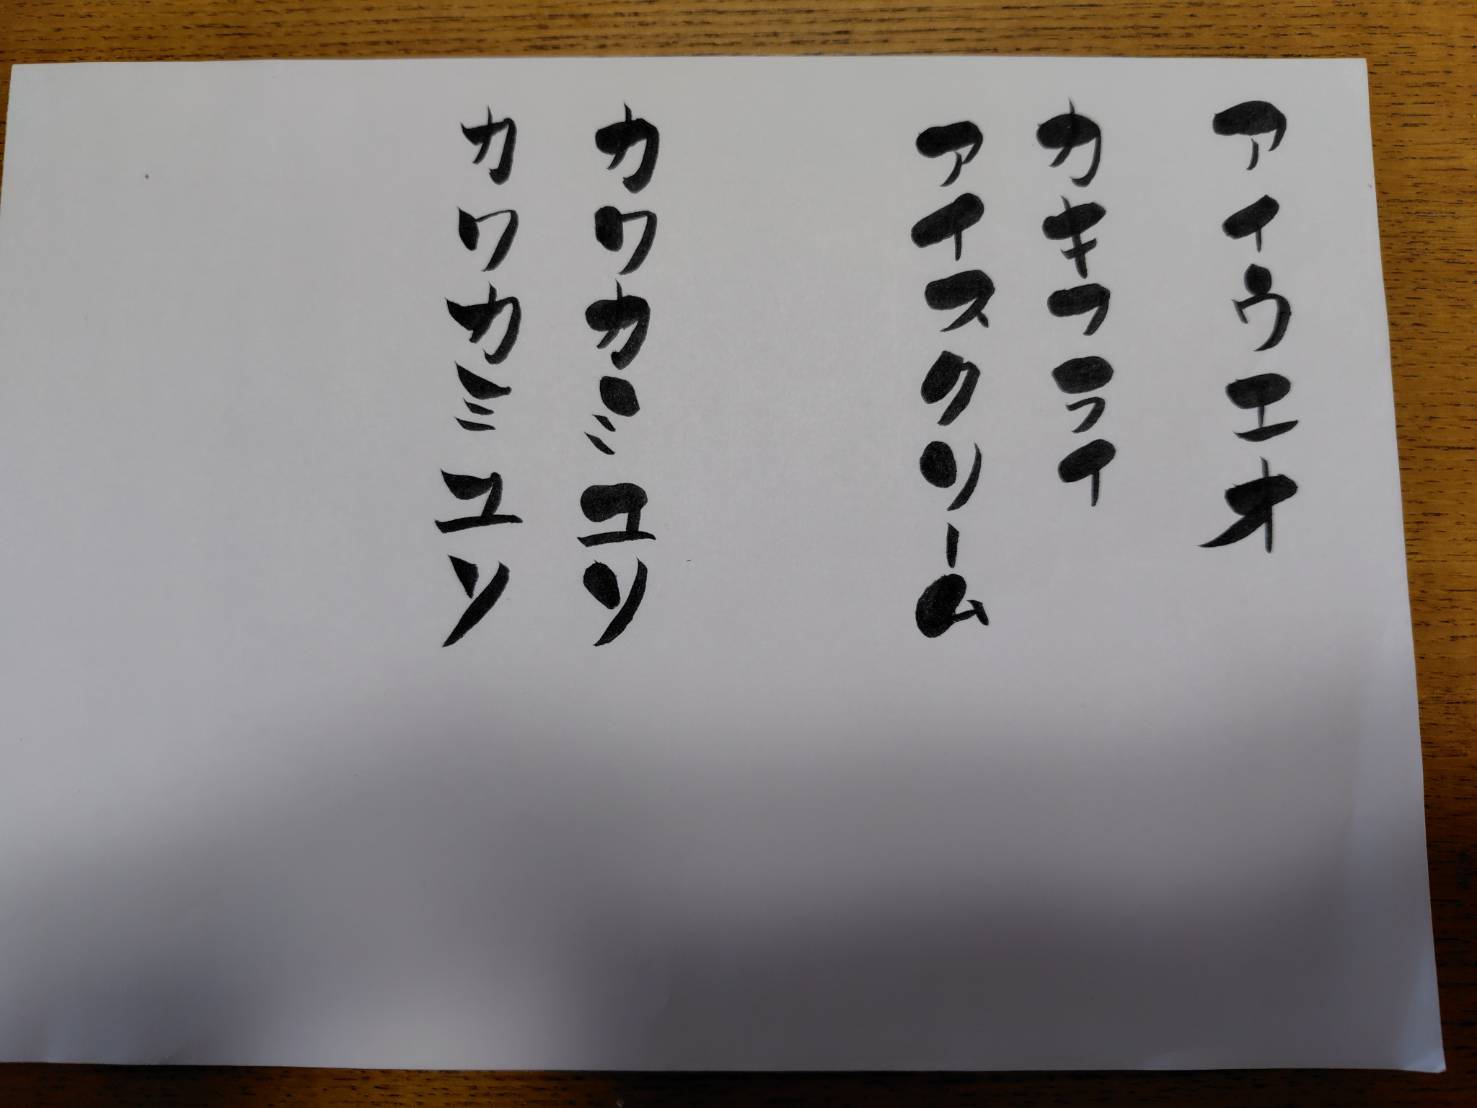 アイウエオ
カキフライ
アイスクリーム
カワカミユソ
カワカミユソ